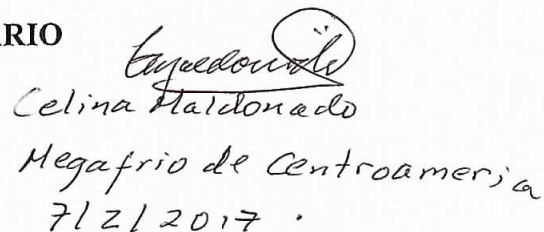 ARIO
Celina Maldonado
Megafrio de Centroameria
7/2/2017.